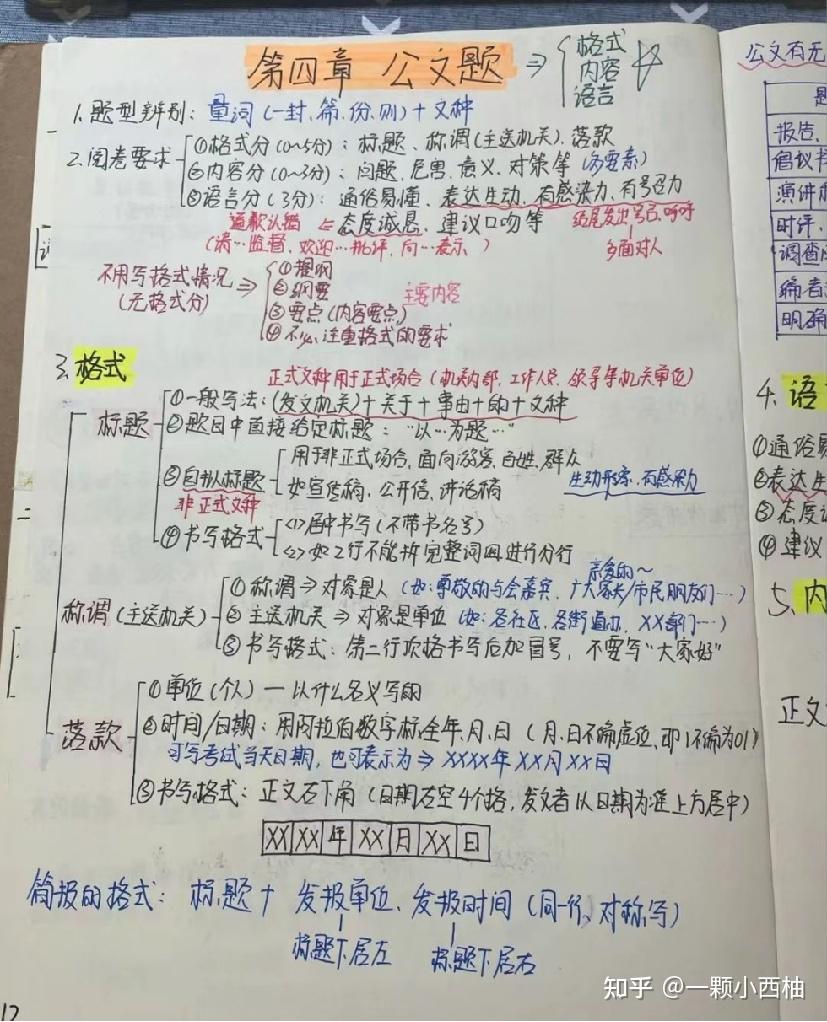 第四章 公文题 ⇒ { 格式 内容 语言
1. 题型辨别：量词（一封、篇、份、则）+ 文种
2. 阅卷要求
①格式分（0~5分）：标题、称谓（主送机关）、落款
②内容分（0~3分）：问题、危害、意义、对策等（多要素）
③语言分（3分）：通俗易懂、表达生动、有感染力、有号召力
道歉认错 ⇐ 态度诚恳、建议口吻等 结尾发出号召、呼吁
（请…监督、欢迎…批评、向…表示） 多面对人
不用写格式情况（无格式分）⇒
①提纲
②纲要 主要内容
③要点（内容要点）
④不必注重格式的要求
3. 格式
正式文种用于正式场合（机关内部、工作人员、领导等机关单位）
标题
①一般写法：（发文机关）+ 关于 + 事由 + 的 + 文种
②题目中直接给定标题：“以…为题…”
③自拟标题 用于非正式场合，面向游客、百姓、群众
非正式文种 如宣传稿、公开信、讲话稿 生动形象、有感染力
④书写格式 <1>居中书写（不带书名号）
<2>如2行不能拆完整词回进行分行
亲爱的~
称谓（主送机关）
①称谓 ⇒ 对象是人（如：尊敬的与会嘉宾，广大家长/市民朋友们…）
②主送机关 ⇒ 对象是单位（如：各社区、各街道办、XX部门…）
③书写格式：第二行顶格书写后加冒号，不要写“大家好”
落款
①单位（个人）— 以什么名义写的
②时间/日期：用阿拉伯数字标全年、月、日（月、日不编虚位，即1不编为01）
可写考试当天日期，也可表示为 ⇒ XXXX年XX月XX日
③书写格式：正文右下角（日期右空4个格，发文者以日期为准上方居中）
XX XX 年 XX 月 XX 日
简报的格式：标题 + 发报单位、发报时间（同一行、对称写）
标题下居左 标题下居右
12
公文有无
报告、
倡议书
演讲
时评、
调查
编者
明确
4. 语
①通俗易
②表达生
③态度
④建议
5. 内
正文
知乎 @一颗小西柚